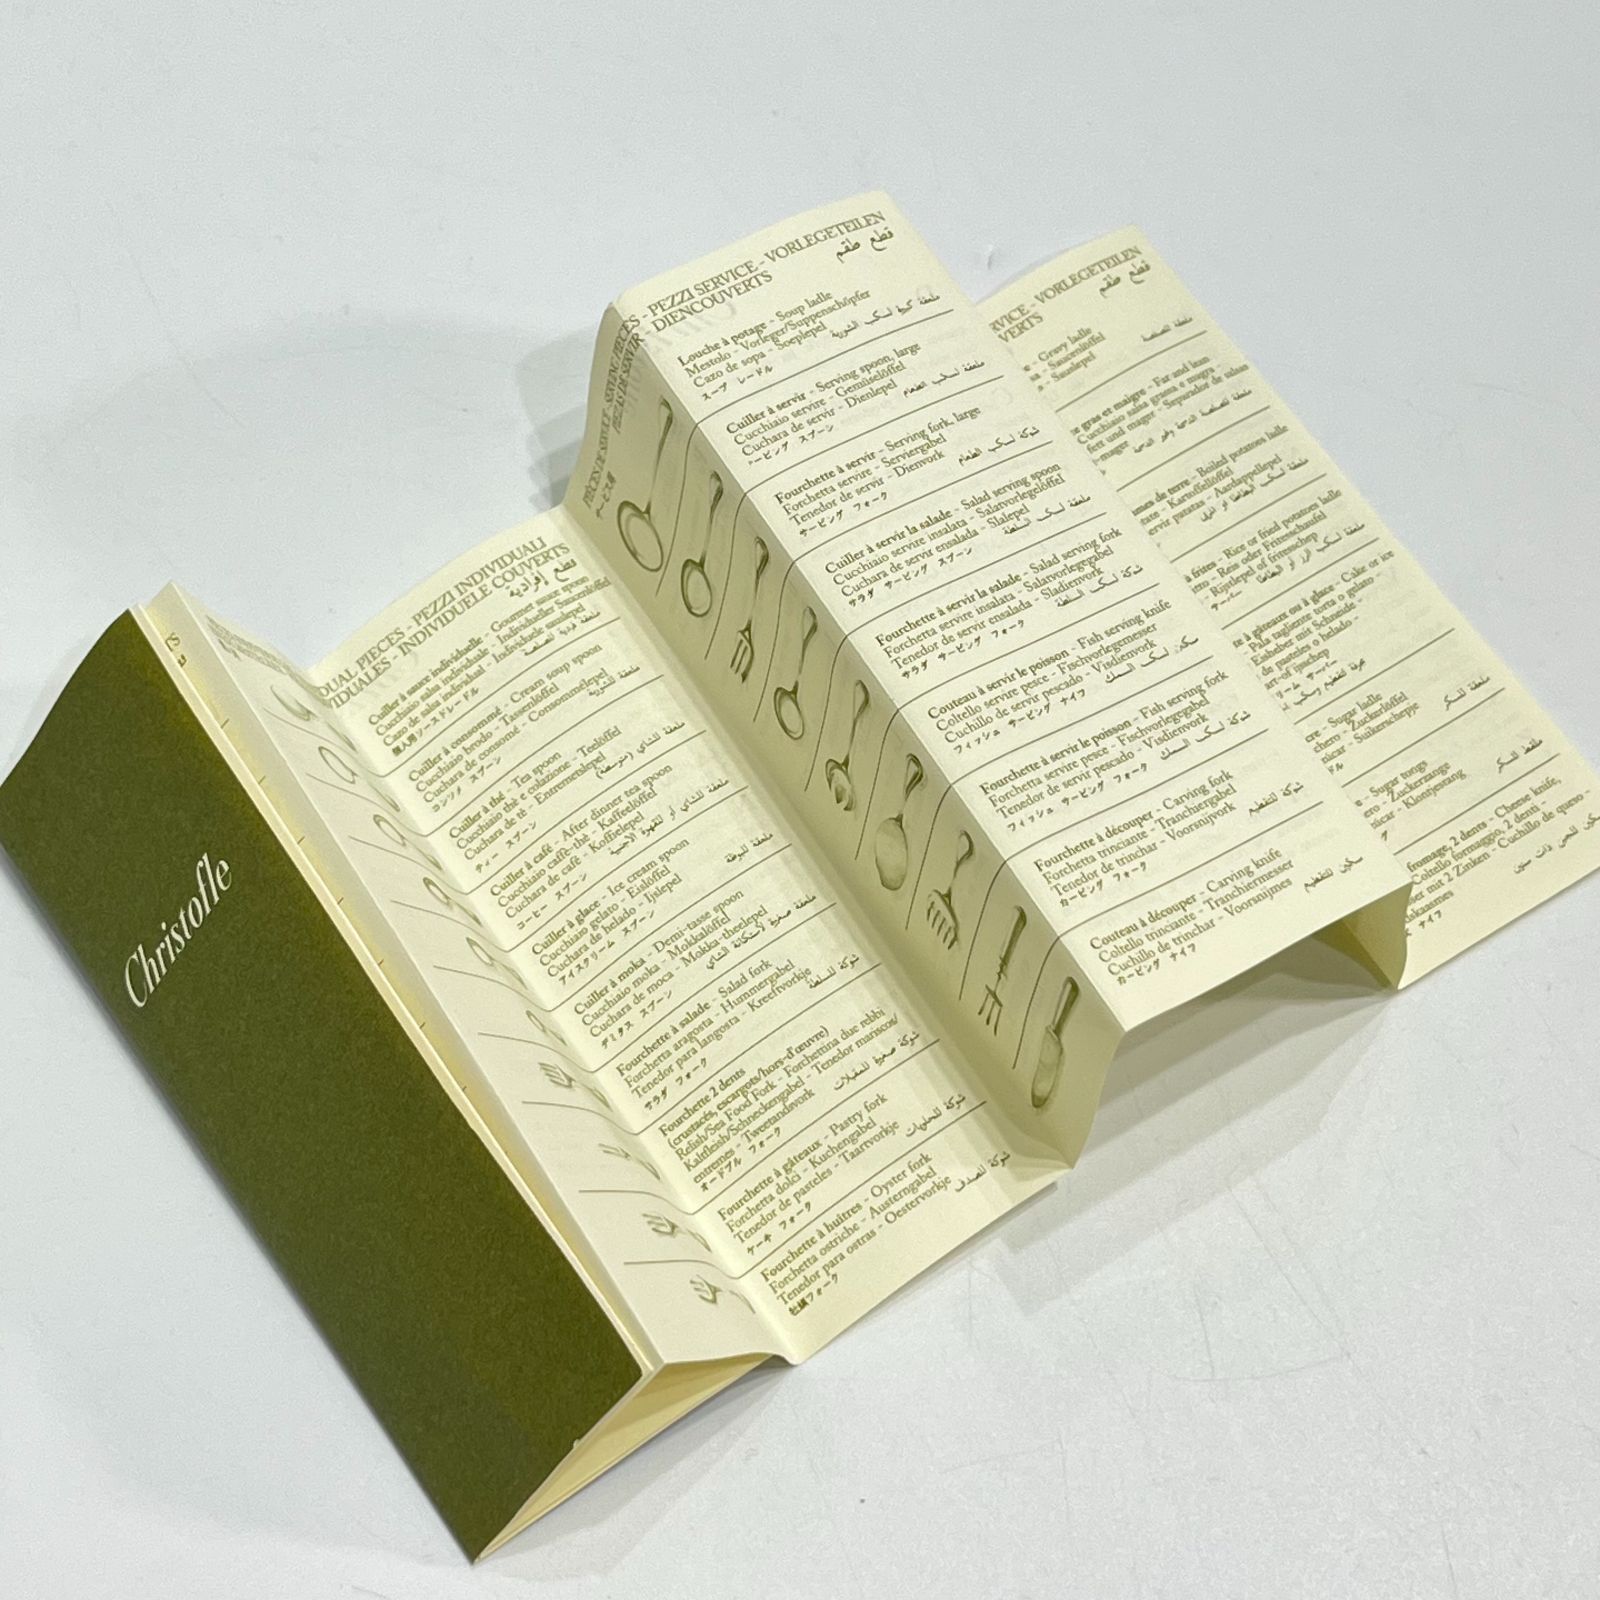 Christofle
DUAL PIECES - PEZZI INDIVIDUALI
VIDUALES - INDIVIDUELE COUVERTS
قطع إفرادية
Cuiller à sauce individuelle - Gourmet sauce spoon
Cucchiaio salsa individuale - Individueller Saucenlöffel
Cazo de salsa individual - Individuele sauslepel
Cuiller à consommé - Cream soup spoon
Cucchiaio brodo - Tassenlöffel
Cuchara de consomé - Consommelepel
コンソメ スプーン
Cuiller à thé - Tea spoon
Cucchiaio thè e colazione - Teelöffel
Cuchara de té - Entremetslepel
ティー スプーン
Cuiller à café - After dinner tea spoon
Cucchiaio caffè-thè - Kaffeelöffel
Cuchara de café - Koffielepel
コーヒー スプーン
Cuiller à glace - Ice cream spoon
Cucchiaio gelato - Eislöffel
Cuchara de helado - Ijslepel
アイスクリーム スプーン
Cuiller à moka - Demi-tasse spoon
Cucchiaio moka - Mokkalöffel
Cuchara de moca - Mokka-theelepel
デミタス スプーン
Fourchette à salade - Salad fork
Forchetta aragosta - Hummergabel
Tenedor para langosta - Kreeftvorkje
شوكة للسلطة
サラダ フォーク
Fourchette 2 dents
(crustacés, escargots/hors-d'œuvre)
Relish/Sea Food Fork - Forchettina due rebbi
Kaltfleish/Schneckengabel - Tenedor mariscos/
entremes - Tweetandsvork
オードブル フォーク
Fourchette à gâteaux - Pastry fork
Forchetta dolci - Kuchengabel
Tenedor de pasteles - Taartvorkje
شوكة للحلويات
ケーキ フォーク
Fourchette à huîtres - Oyster fork
Forchetta ostriche - Austerngabel
Tenedor para ostras - Oestervorkje
شوكة للصدف
PIÈCES DE SERVICE - SERVING PIECES - PEZZI SERVICE - VORLEGETEILEN
PIEZAS DE SERVIR - DIENCOUVERTS
قطع طقم
Louche à potage - Soup ladle
Mestolo - Vorleger/Suppenschöpfer
Cazo de sopa - Soeplepel
スープ レードル
Cuiller à servir - Serving spoon, large
Cucchiaio servire - Gemüselöffel
Cuchara de servir - Dienlepel
ملعقة لسكب الطعام
ービング スプーン
Fourchette à servir - Serving fork, large
Forchetta servire - Serviergabel
Tenedor de servir - Dienvork
شوكة لسكب الطعام
サービング フォーク
Cuiller à servir la salade - Salad serving spoon
Cucchiaio servire insalata - Salatvorlegelöffel
Cuchara de servir ensalada - Slalepel
ملعقة لسكب السلطة
サラダ サービング スプーン
Fourchette à servir la salade - Salad serving fork
Forchetta servire insalata - Salatvorlegegabel
Tenedor de servir ensalada - Sladienvork
شوكة لسكب السلطة
サラダ サービング フォーク
Couteau à servir le poisson - Fish serving knife
Coltello servire pesce - Fischvorlegemesser
Cuchillo de servir pescado - Visdienvork
سكين لسكب السمك
フィッシュ サービング ナイフ
Fourchette à servir le poisson - Fish serving fork
Forchetta servire pesce - Fischvorlegegabel
Tenedor de servir pescado - Visdienvork
شوكة لسكب السمك
フィッシュ サービング フォーク
Fourchette à découper - Carving fork
Forchetta trinciante - Tranchiergabel
Tenedor de trinchar - Voorsnijvork
شوكة للتقطيع
カービング フォーク
Couteau à découper - Carving knife
Coltello trinciante - Tranchiermesser
Cuchillo de trinchar - Voorsnijmes
سكين للتقطيع
カービング ナイフ
RVICE - VORLEGETEILEN
VERTS
قطع طقم
e - Gravy ladle
sa - Saucenlöffel
a - Sauslepel
ملعقة للصلصة
e gras et maigre - Fat and lean
Cucchiaio salsa grassa e magra -
fett und mager - Separador de salsas
-mager
mes de terre - Boiled potatoes ladle
tate - Kartoffellöffel
ervir patatas - Aardappellepel
à frites - Rice or fried potatoes ladle
tto - Reis oder Fritesschaufel
- Rijstlepel of fritesschep
te à gâteaux ou à glace - Cake or ice
- Pala tagliente torta o gelato -
Eisheber mit Schneide -
de pasteles o helado -
art-of ijsschep
cre - Sugar ladle
chero - Zuckerlöffel
zúcar - Suikerschepje
ملعقة للسكر
e - Sugar tongs
ero - Zuckerzange
zúcar - Klontjestang
ملقط للسكر
fromage, 2 dents - Cheese knife,
Coltello formaggio, 2 denti -
er mit 2 Zinken - Cuchillo de queso -
سكين للجبن ذات سنين
ナイフ